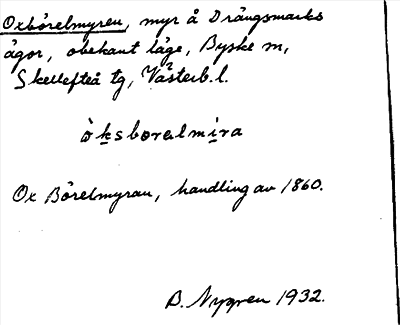 Oxbörelmyren, myr å Drängsmarks
ägor, obekant läge, Byske sn,
Skellefteå tg, Västerb. l.
òksborelmira
Ox Börelmyran, handling av 1860.
B. Nygren 1932.